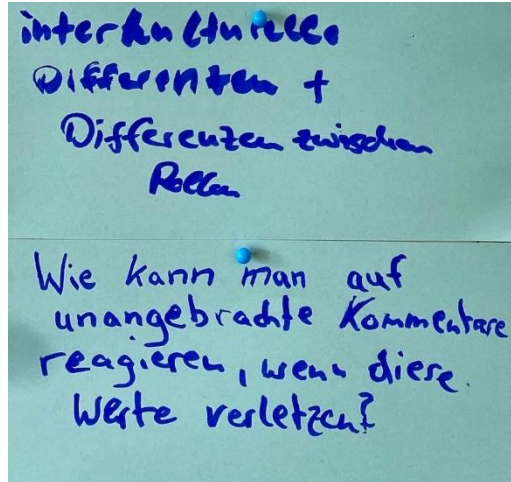 interkulturelle
Differenzen +
Differenzen zwischen
Rollen
Wie kann man auf
unangebrachte Kommentare
reagieren, wenn diese
Werte verletzen?